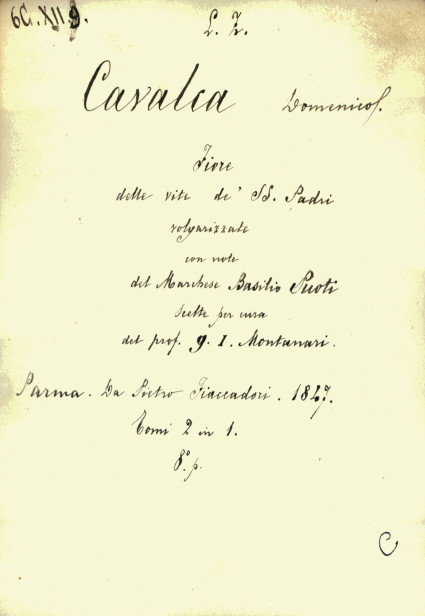 6C. XII 9.
L. Z.
Cavalca Domenico.
Fiore
delle vite de' SS. Padri
volgarizzate
con note
del Marchese Basilio Puoti
scelte per cura
del prof. G. I. Montanari.
Parma. Da Pietro Fiaccadori. 1847.
Tomi 2 in 1.
8.º p.
C